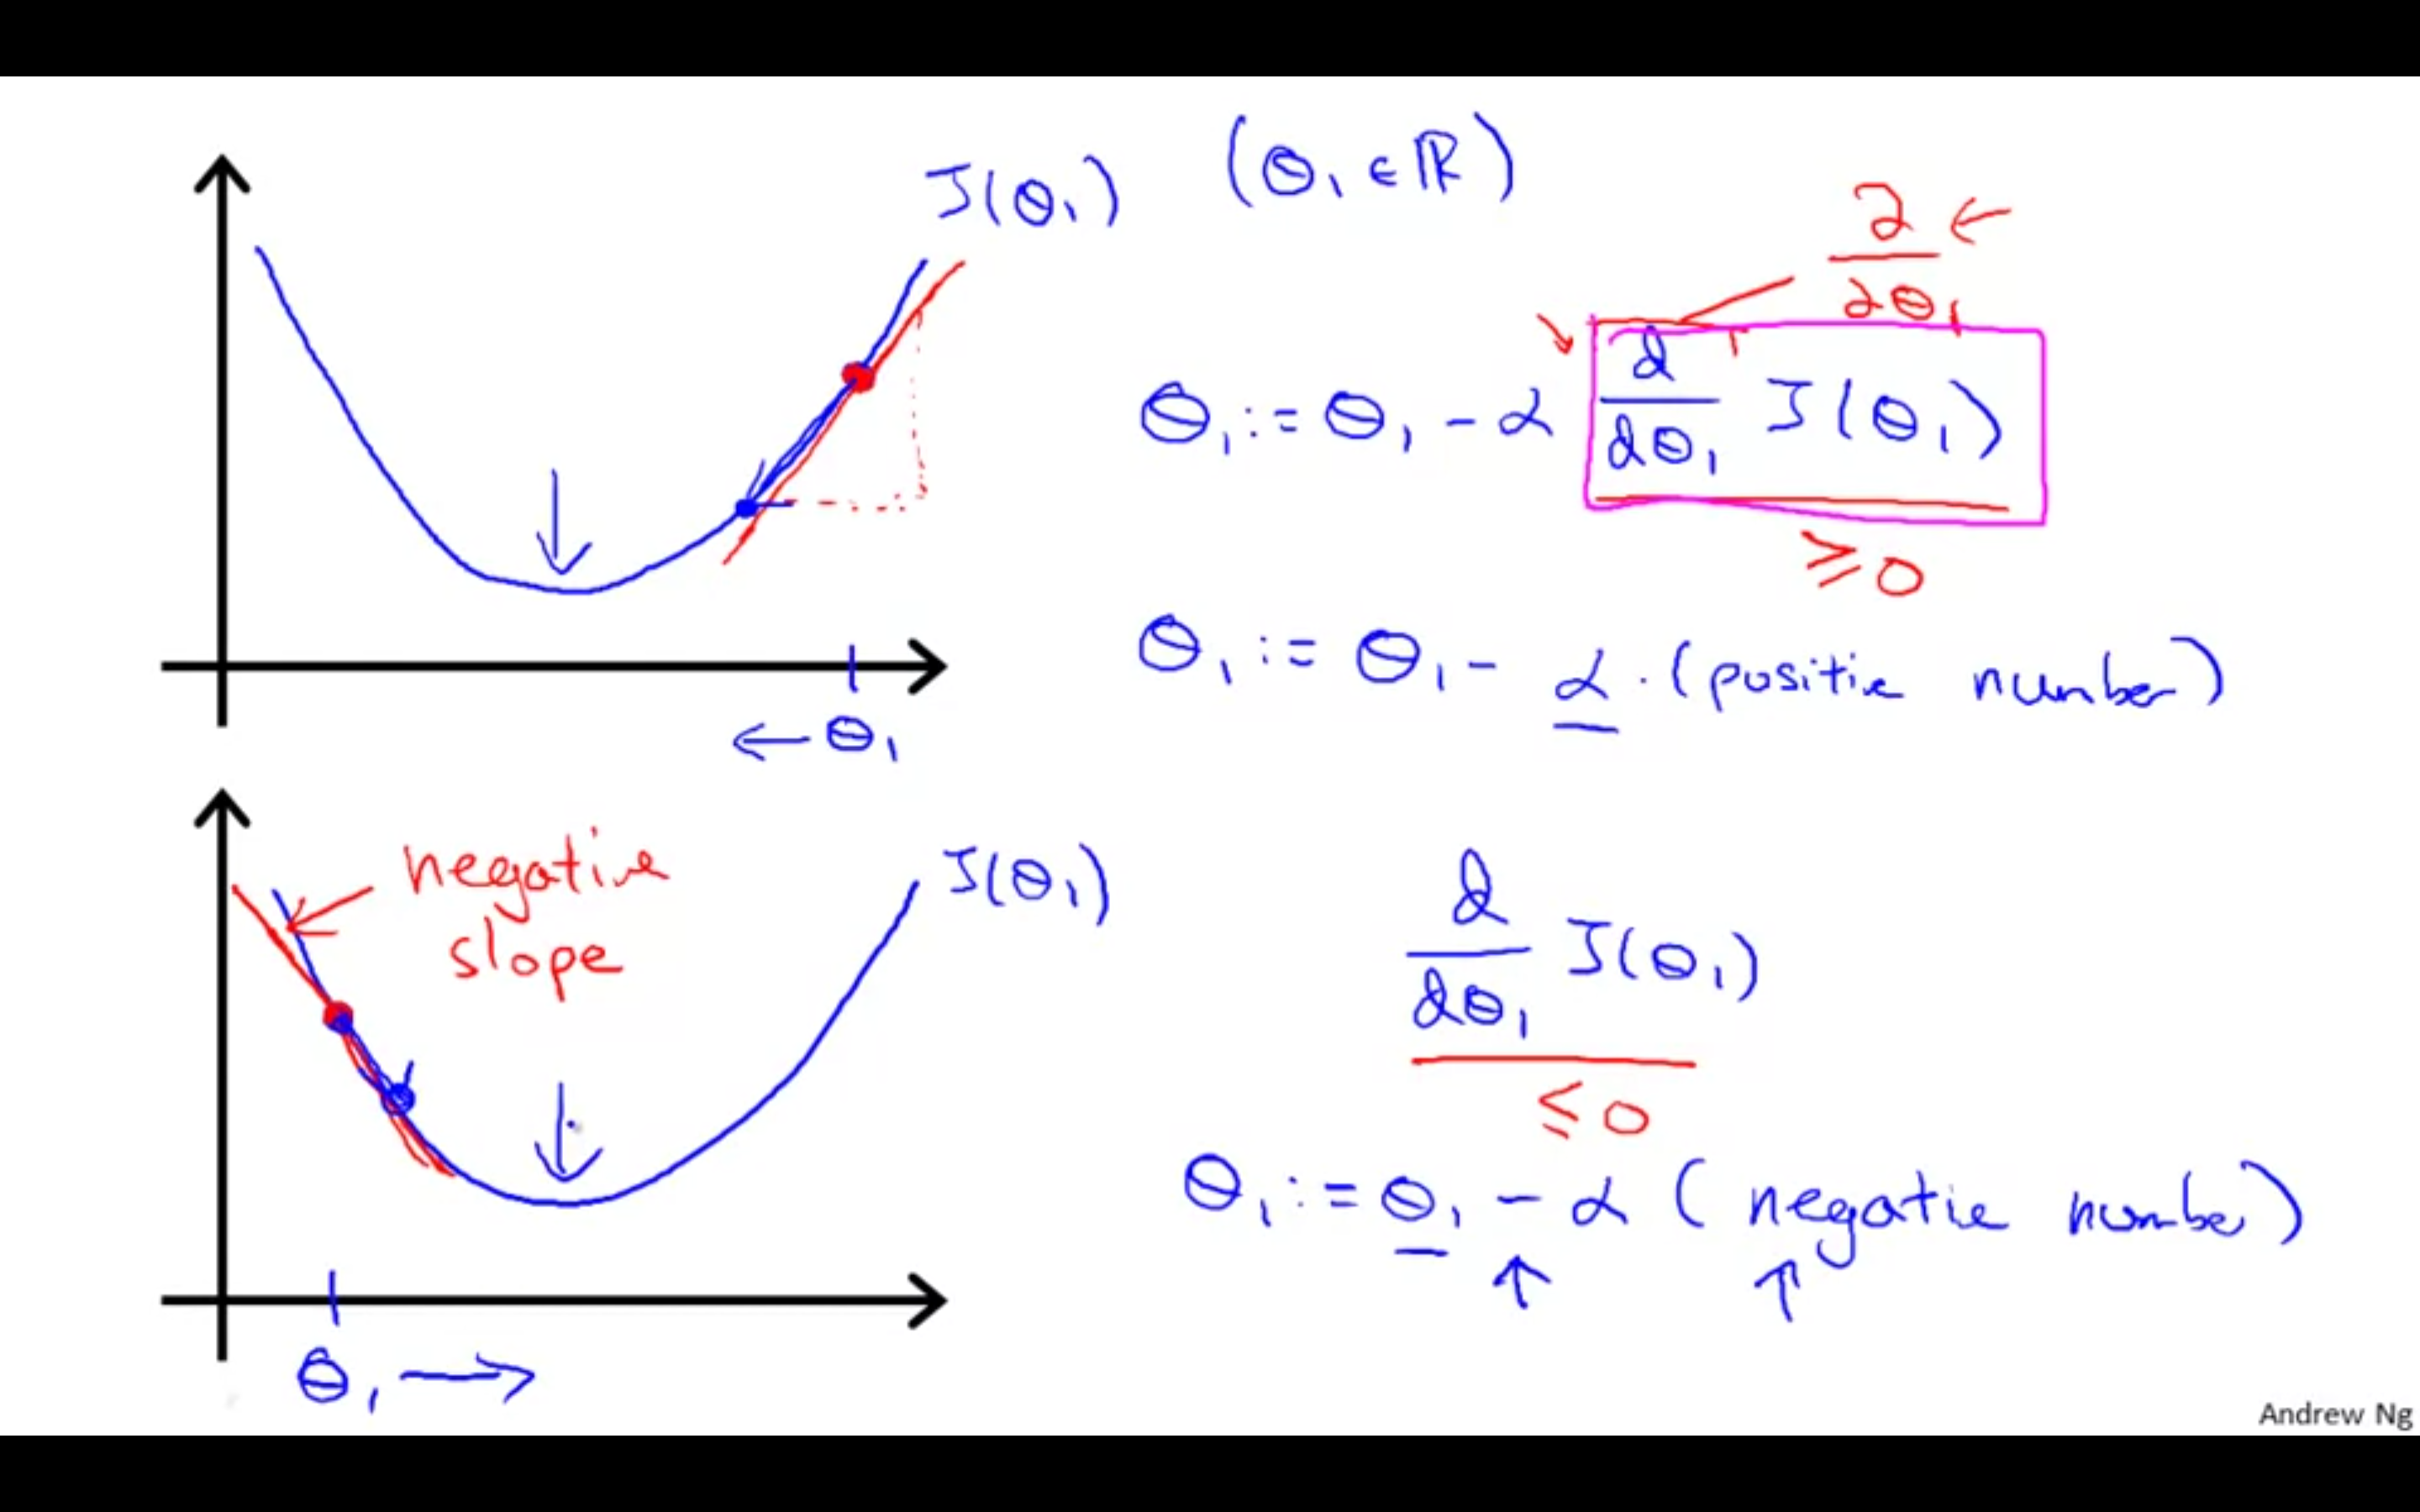 J(θ₁) (θ₁ ∈ ℝ)
∂
∂θ₁
θ₁ := θ₁ - α d/dθ₁ J(θ₁)
≥ 0
θ₁ := θ₁ - α · (positive number)
θ₁
negative
slope
J(θ₁)
d/dθ₁ J(θ₁)
≤ 0
θ₁ := θ₁ - α (negative number)
θ₁
Andrew Ng